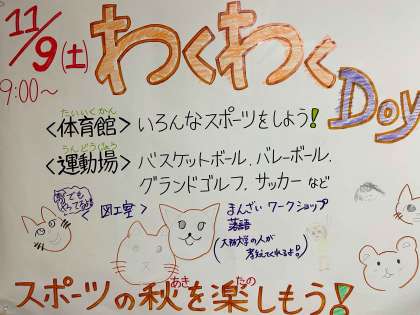 11/9(土)
9:00～
わくわく Day
たいいくかん
<体育館> いろんなスポーツをしよう!
うんどうじょう
<運動場> バスケットボール、バレーボール、
グランドゴルフ、サッカー など
<図工室> まんざい ワークショップ
落語
(大阪大学の人が
教えてくれるよ!)
あき たの
スポーツの秋を楽しもう!